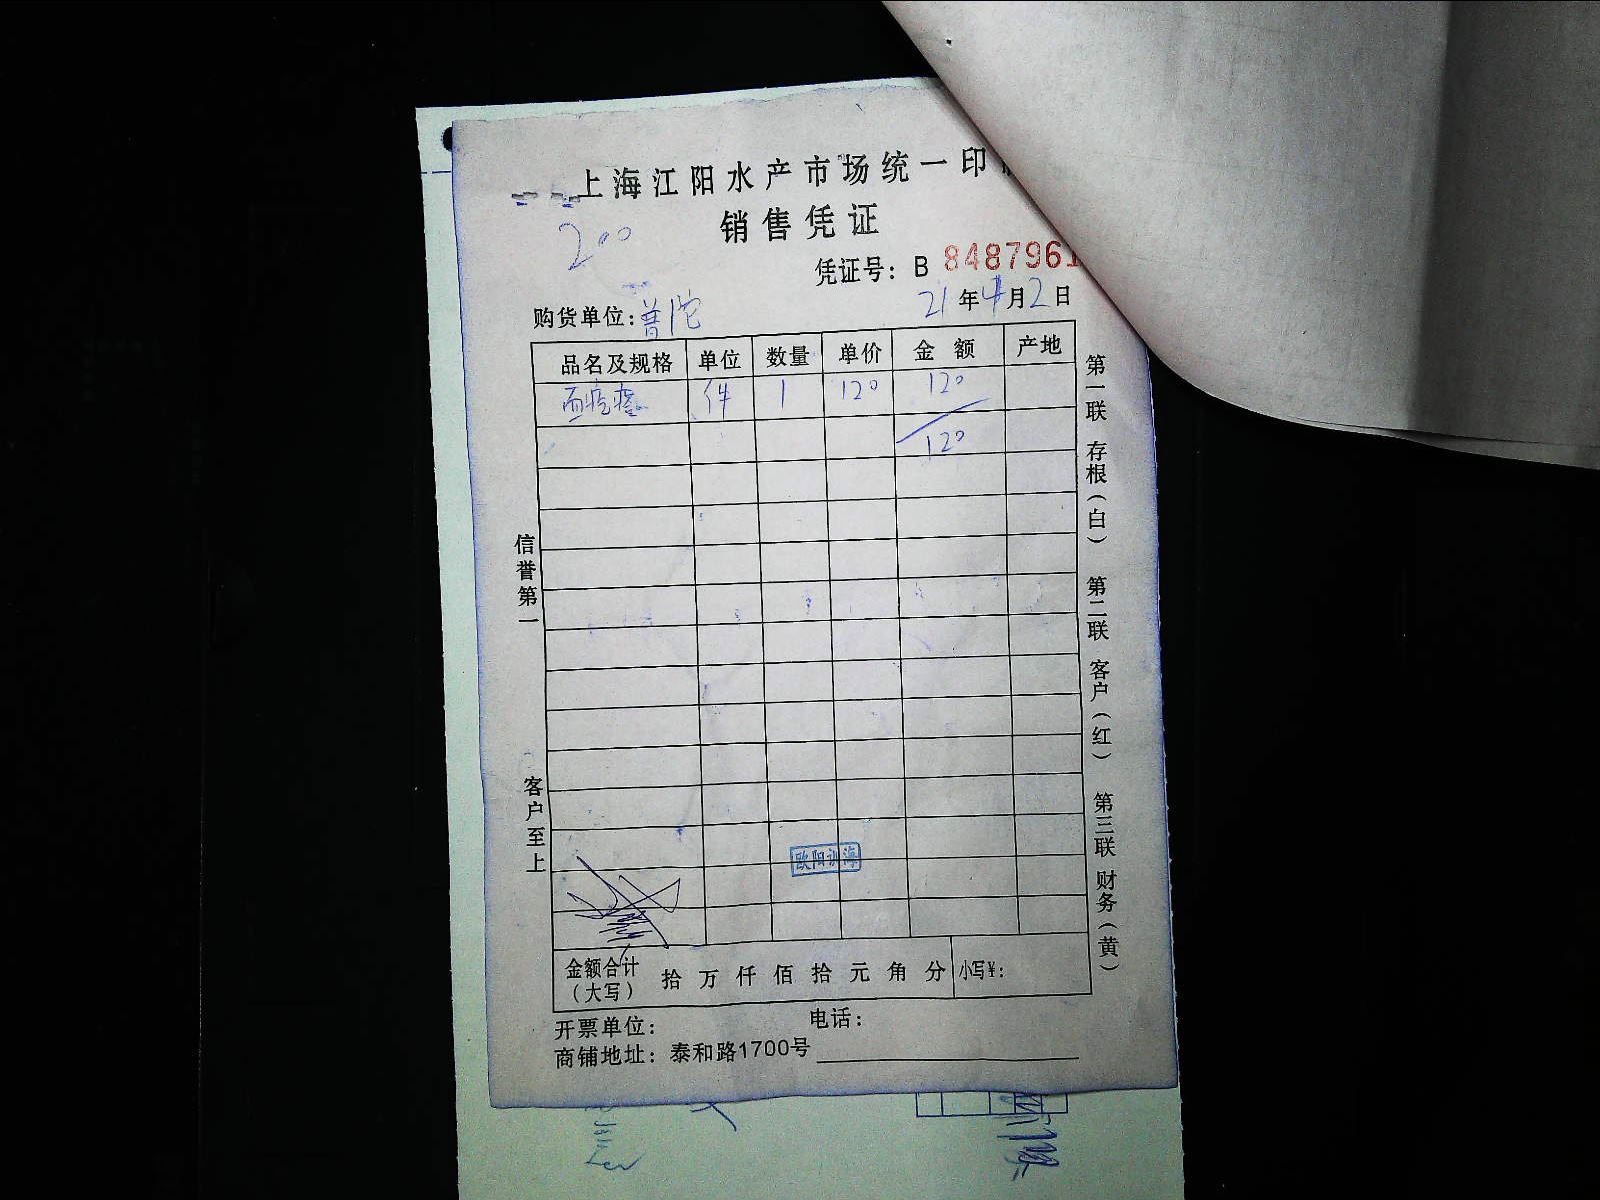 上海江阳水产市场统一印
销售凭证
200
凭证号：B 8487961
购货单位：普陀
21年4月2日
品名及规格 单位 数量 单价 金额 产地
面疙瘩 件 1 120 120
120
信誉第一
客户至上
第一联 存根（白） 第二联 客户（红） 第三联 财务（黄）
金额合计（大写） 拾万仟佰拾元角分 小写¥：
开票单位： 电话：
商铺地址：泰和路1700号